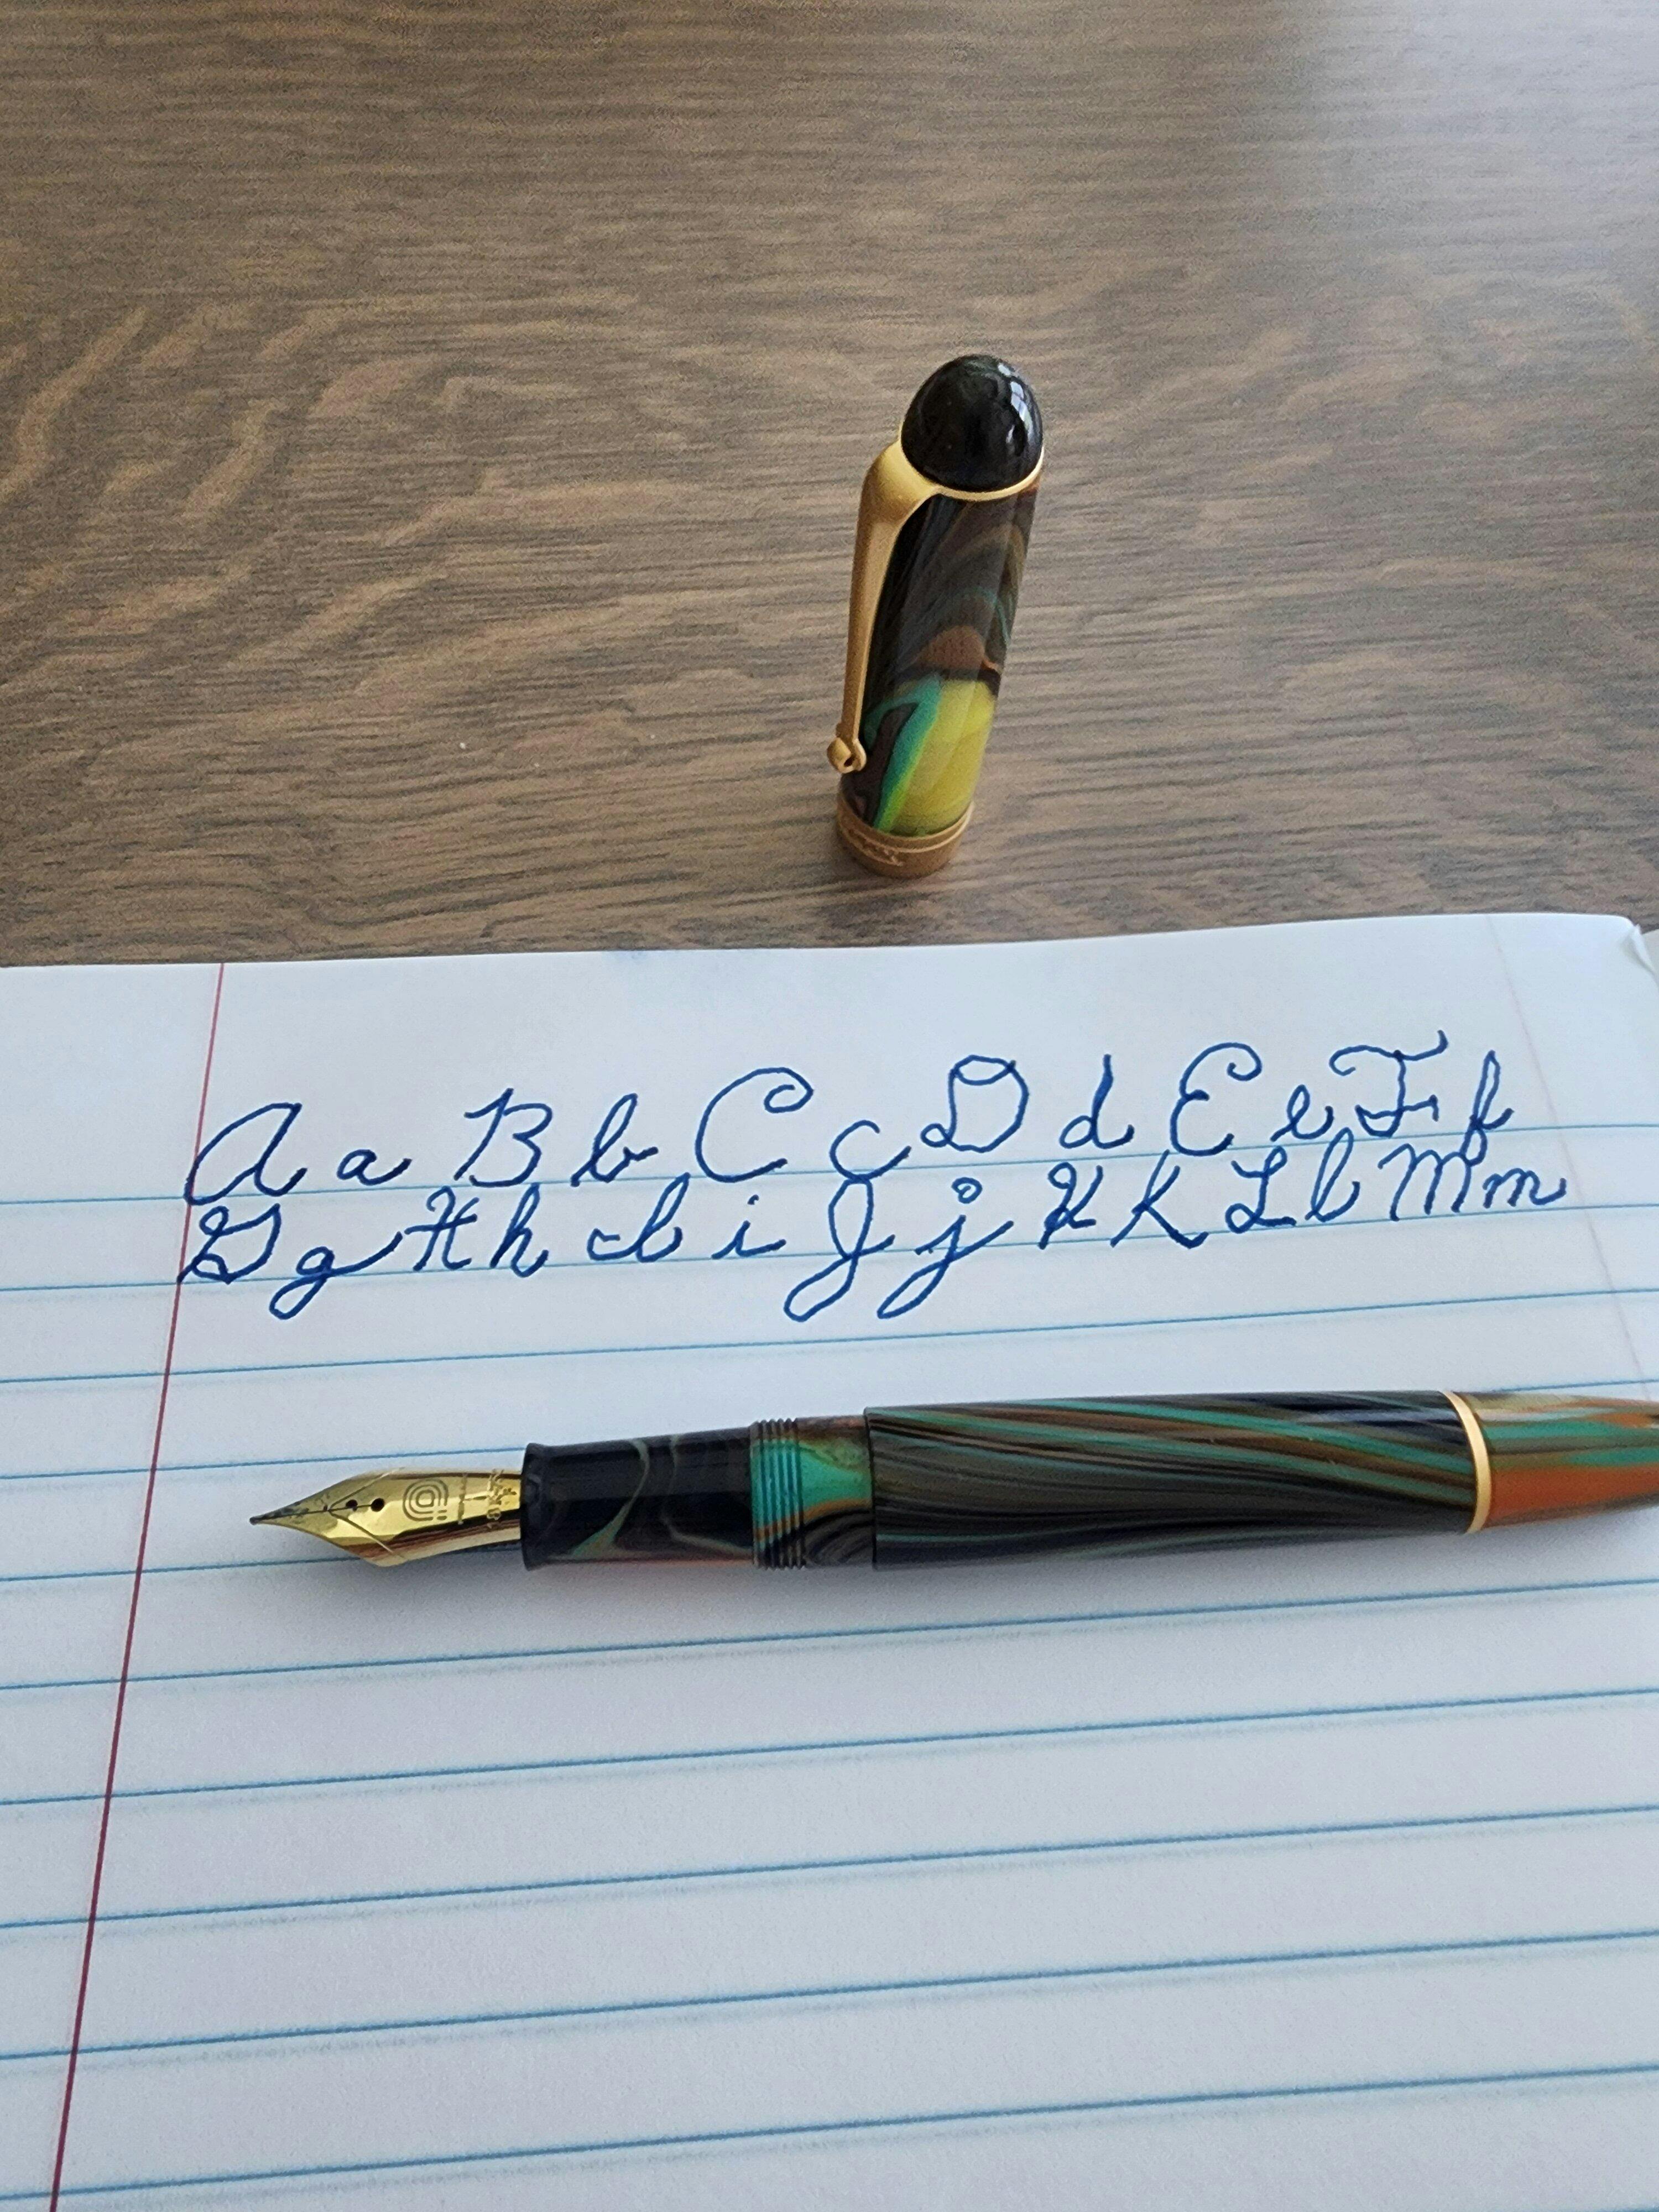 Aa Bb Cc Dd Ee Ff
Gg Hh Ii Jj Kk Ll Mm